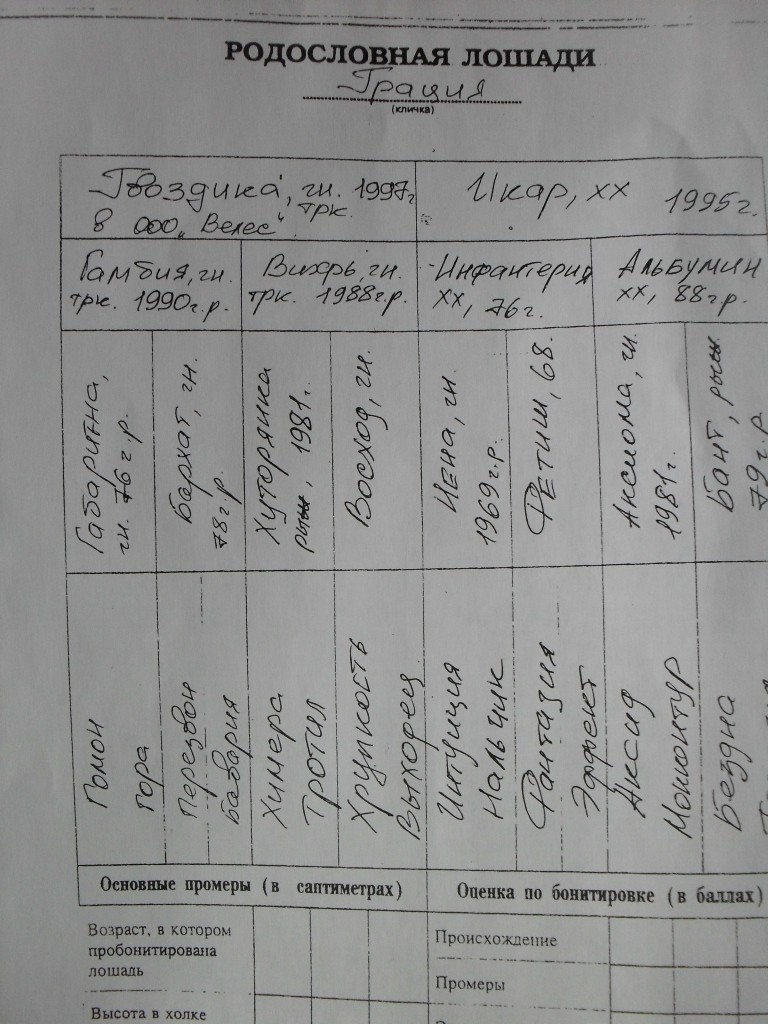 РОДОСЛОВНАЯ ЛОШАДИ
Грация
(кличка)
Гвоздика, гн. 1997г
трк.
в ООО „Велес"
Икар, хх 1995г.
Гамбия, гн.
трк. 1990г.р.
Вихрь, гн.
трк. 1988г.р.
Инфантерия
хх, 76г.
Альбумин
хх, 88г.р.
Габаритна,
гн. 76 г.р.
Бархат, гн.
78г.р.
Хуторянка
рыж, 1981г.
Восход, гн.
Иена, гн.
1969г.р.
Фетиш, 68.
Аксиома, гн.
1981г.
Бант, рыж
79г.р.
Гомон
Гора
Перезвон
Бавария
Химера
Тротил
Хрупкость
Выходец
Интуиция
Нальчик
Фантазия
Эффект
Аксид
Монконтур
Бездна
Основные промеры (в саптиметрах)
Оценка по бонитировке (в баллах)
Возраст, в котором
пробонитирована
лошадь
Высота в холке
Происхождение
Промеры